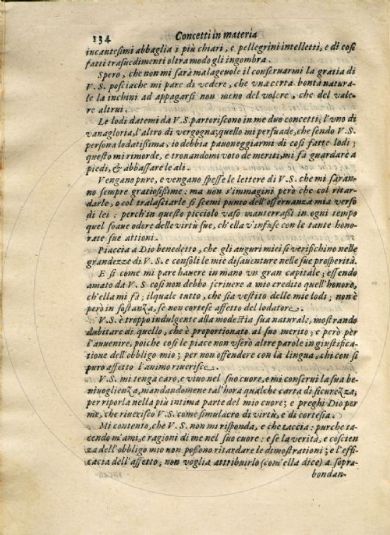 134 Concetti in materia
incantesimi abbaglia i più chiari, e pellegrini intelletti, e di così
fatti trasucdimenti oltra modo gli ingombra.
Spero, che non mi sarà malageuole il conseruarmi la gratia di
V.S. poscia che mi pare di vedere, che vna certa bontà natura-
le la inchini ad appagarsi non meno del volere, che del vale-
re altrui.
Le lodi datemi da V.S. partoriscono in me duo concetti, l'vno di
vanagloria, l'altro di vergogna; quello mi persuade, che sendo V.S.
persona lodatissima, io debbia pauoneggiarmi di così fatte lodi;
questo mi rimorde, e trouandomi voto de meriti, mi fà guardare a
piedi, & abbassare le ali.
Vengano pure, e vengano spesse le lettere di V.S. che mi saran-
no sempre gratiosissime: ma non s'immagini però che col ritar-
darle, o col tralasciarle si scemi punto dell'osseruanza mia verso
di lei: perch'in questo picciolo vaso manterrassi in ogni tempo
quel soaue odore delle virtù sue, ch'ella v'infuse con le tante hono-
rate sue attioni.
Piaccia a Dio benedetto, che gli augurij miei si verifichino nelle
grandezze di V.S. e consoli le mie disauenture nelle sue prosperità.
E sì come mi pare hauere in mano vn gran capitale; essendo
amato da V.S. così non debbo scriuere a mio credito quell'honore,
ch'ella mi fà; il quale tutto, che sia vestito delle mie lodi, non è
però in sostanza, se non cortese affetto del lodatore.
V.S. è troppo indulgente alla modestia sua naturale, mostrando
dubitare di quello, che è proportionato al suo merito; e però per
l'auuenire, poiche così le piace non vserò altre parole in giustifica-
tione dell'obbligo mio; per non offendere con la lingua, chi con sì
puro affetto l'animo riuerisce.
V.S. mi tenga caro, e viuo nel suo cuore, e mi conserui la sua be-
niuoglienza, mandandomene talhora qualche carta di sicurezza,
per riporla nella più intima parte del mio cuore; e preghi Dio per
me, che riuerisco V.S. come simulacro di virtù, e di cortesia.
Mi contento, che V.S. non mi risponda, e che taccia: purche ta-
cendo m'ami, e ragioni di me nel suo cuore: e se la verità, e coscien
za dell'obbligo mio non possono ritardare le dimostrationi; e l'effi-
cacia dell'affetto, non voglia attribuirlo (com'ella dice) a sopra-
bondan-